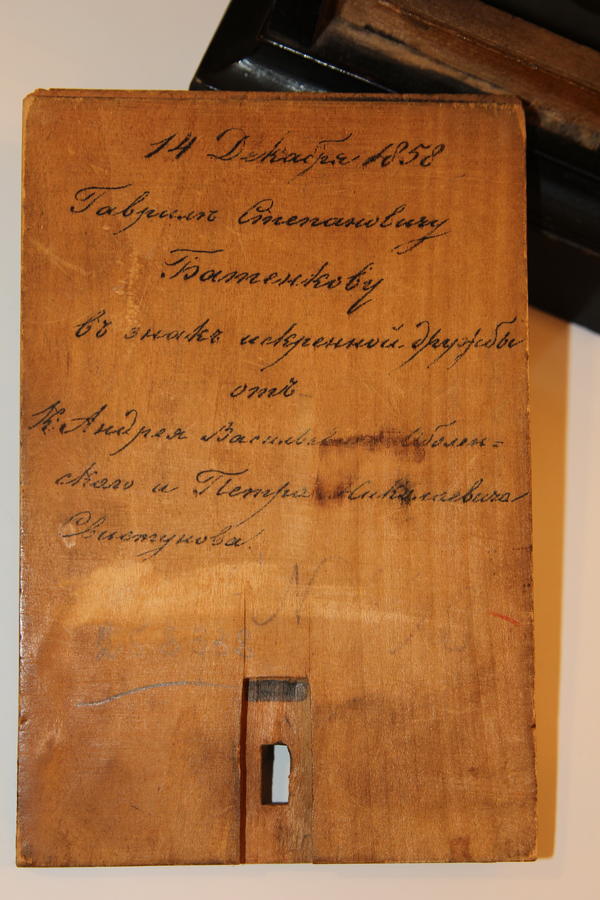 14 Декабря 1858
Гаврилѣ Степановичу
Батенкову
въ знакъ искренной дружбы
отъ
К. Андрея Васильевича Оболен=
скаго и Петра Николаевича
Свистунова.
N